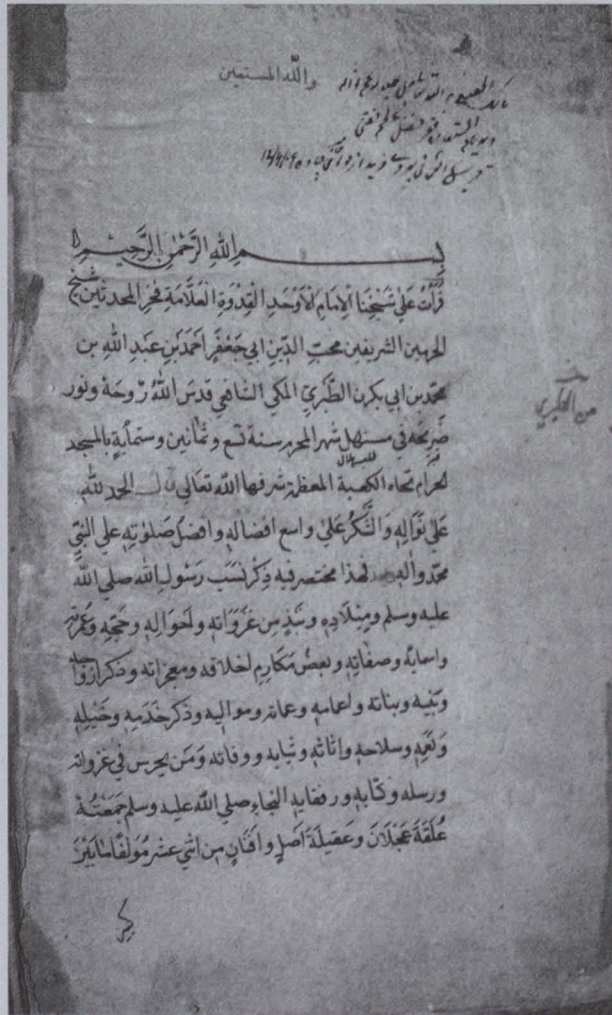 والله المستعين
بسم الله الرَّحْمٰنِ الرَّحِيمِ
قرأت عَلٰي شَيْخِنَا الْاِمَامِ الْاَوْحَدِ الْقِدْوَةِ الْعَلَّامَةِ فَخْرِ المحدثين شيخ
الحرمين الشريفين محبّ الدّينِ ابي جَعْفَرٍ اَحْمَدَ بْنِ عَبْدِ اللهِ بن
محمّد بن ابي بكر بن الطَّبَرِيِّ المكي الشافعي قدسَ اللهُ رُوحَهُ ونور
ضَرِيْحَهُ في مستهل شهر المحرم سنة تسع وثمانين وستمايةٍ بالمسجد
الحرام تجاه الكعبة المعظمة شرفها الله تعالي قال الحمد للهِ
عَلٰي نَوَالِهِ وَالشُّكْرُ عَلٰي واسع افضاله وافضل صَلوٰتِهٖ علي النبيِّ
محمّد واٰلهٖ فهذا مختصر فيه ذِكْرُ نَسَبِ رَسُولِ اللهِ صلي الله
عليه وسلم ومِيْلَادِهٖ ونَبْذٍ مِن غَزَوَاتهٖ واَحْوَالِهٖ وحَجّهٖ وعُمَرَتهٖ
واسمايهٖ وصفاتِهٖ وبعضُ مَكَارِمِ اخلاقه ومعجزاته وذكر ازواجه
وبَنِيه وبناته واعمامهٖ وعماته ومواليه وذكر خَدَمِهٖ وخَيْلِهٖ
ونَعَمِهٖ وسلاحهٖ واثاثهٖ وثيابه ووفاته وَمَن يحرس في غزواته
ورسله وكتّابهٖ ورفقايه النجباء صلي الله عليه وسلم جَمَعْتُهُ
عُلَقَةَ عَجْلَانَ وعَقِيلَةَ اَصلٍ وافنانٍ مِن اثني عشر مُولَفًا مَا بَيْنَ
من الطبري